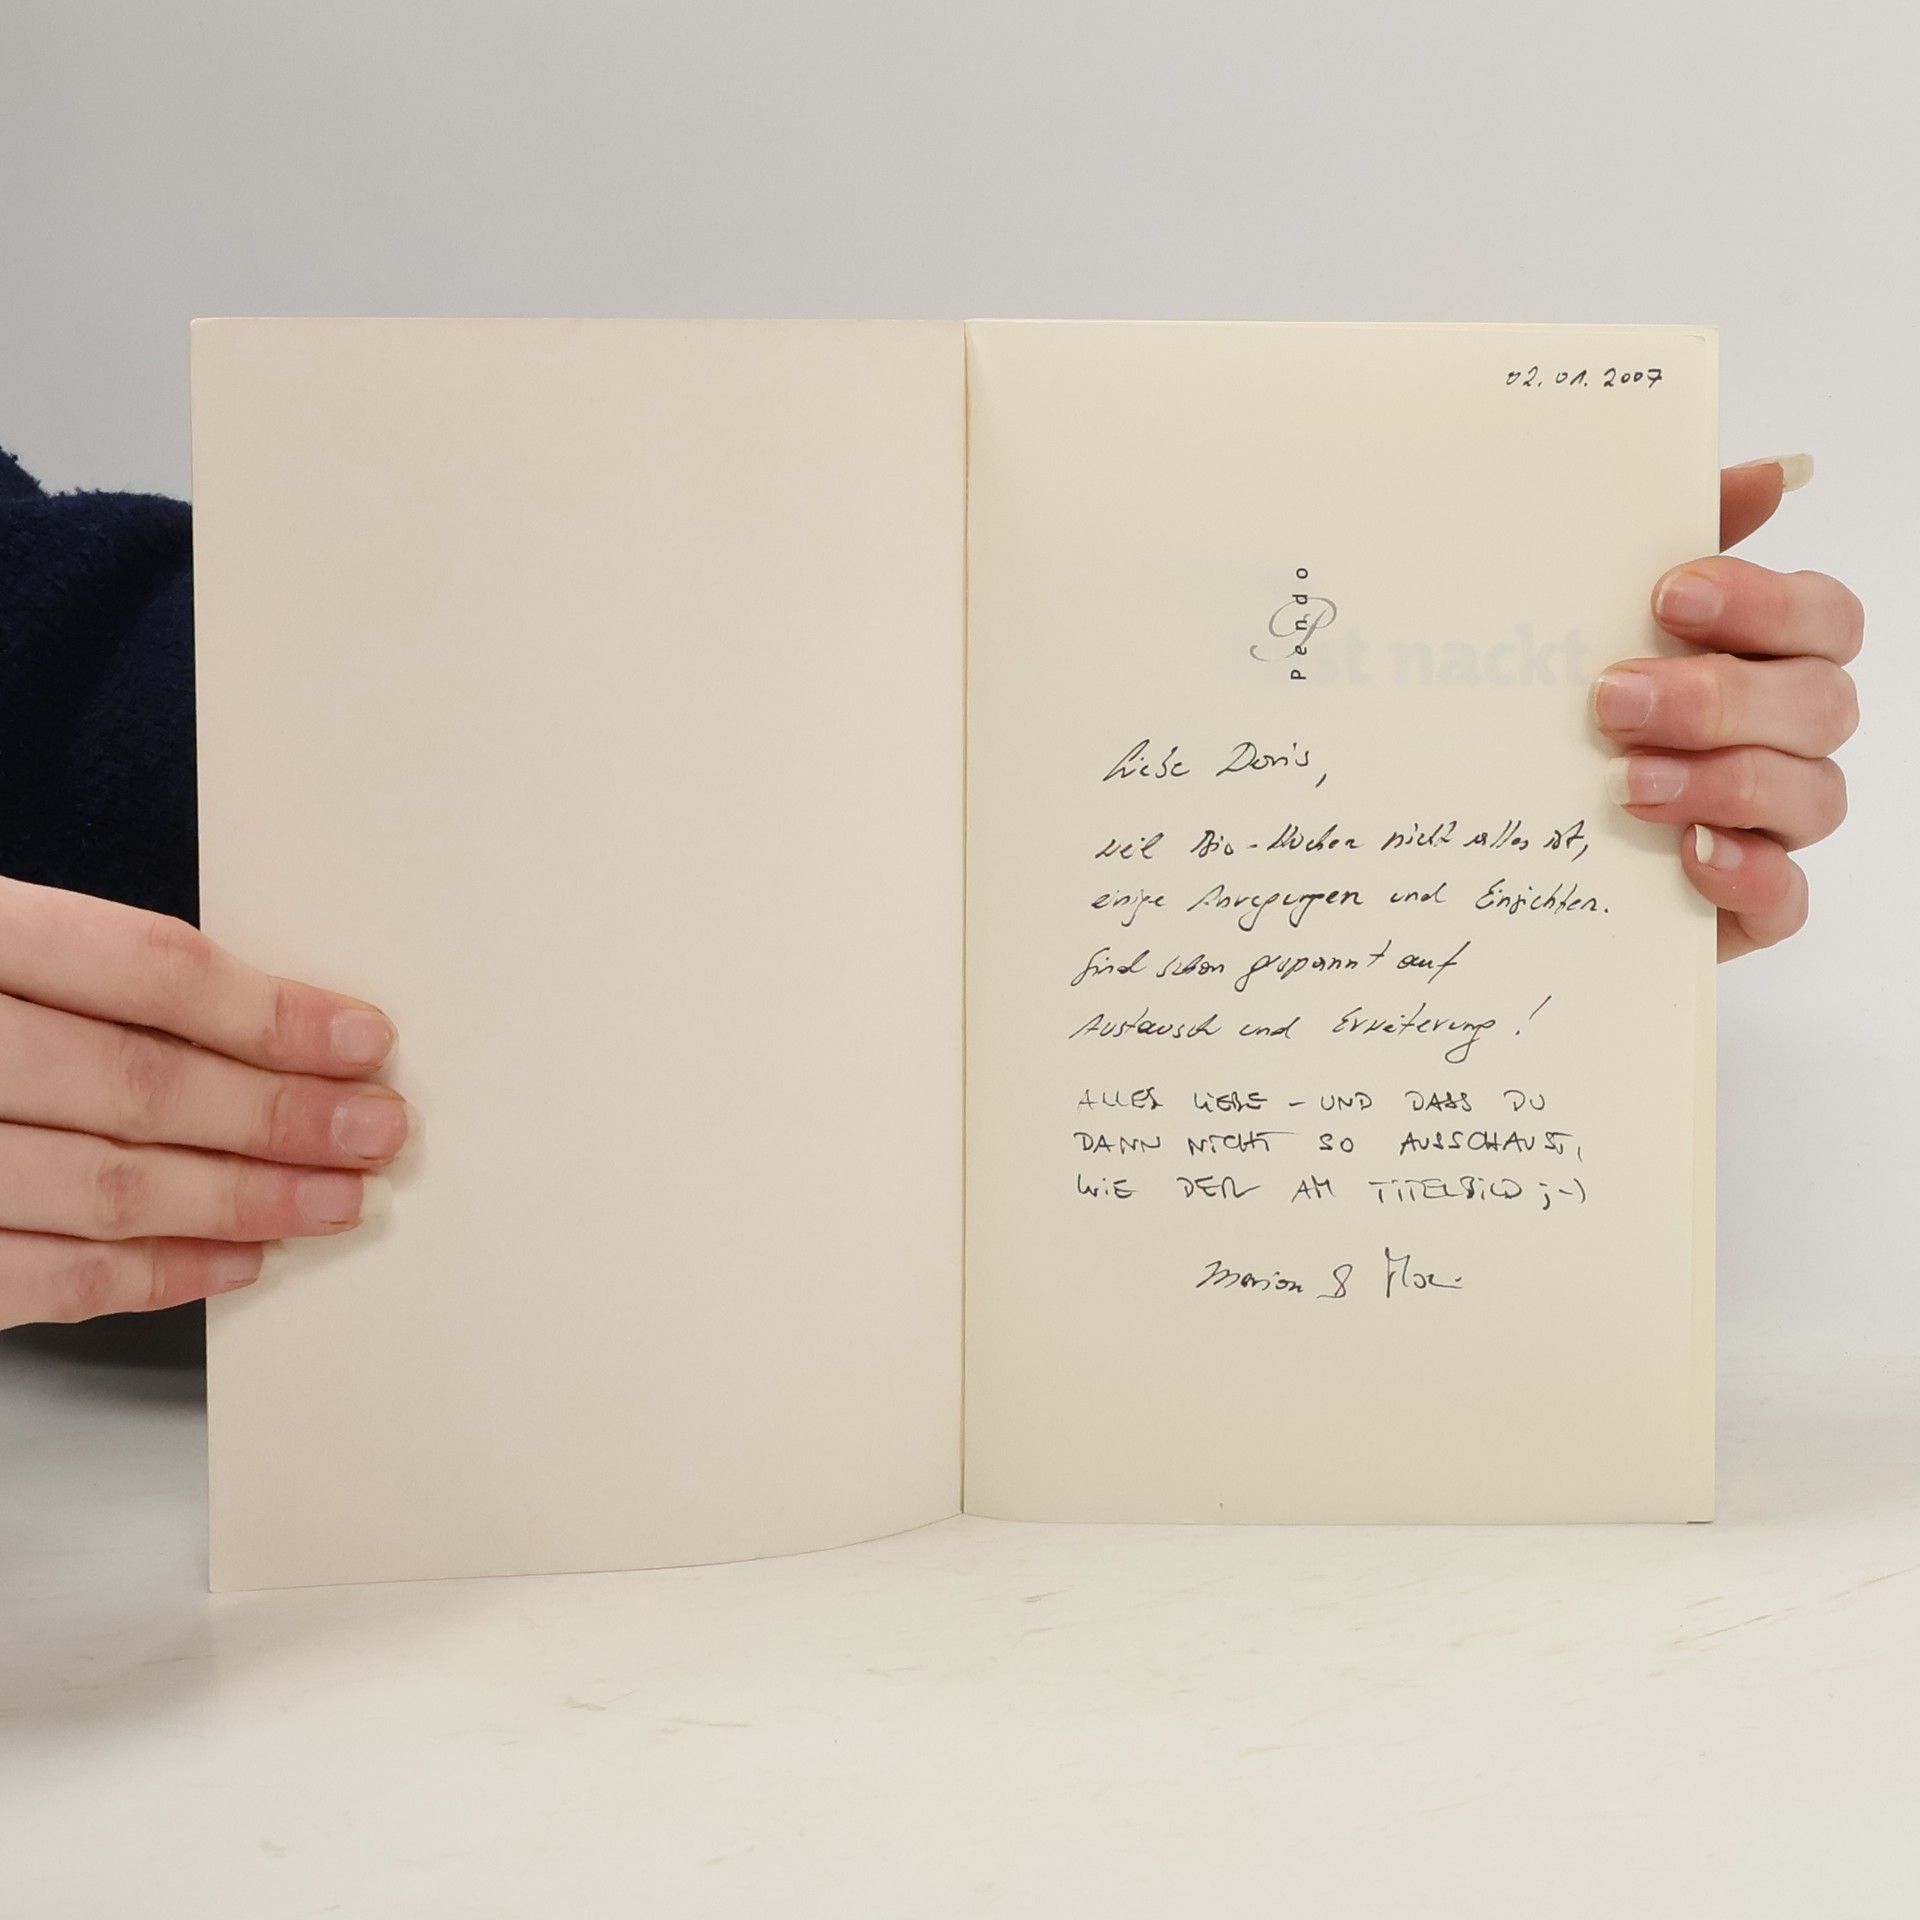 02.01.2007
Pendo
st nackt
Liebe Doris,
weil Bio-Kochen nicht alles ist,
einige Anregungen und Einsichten.
Sind schon gespannt auf
Austausch und Erweiterung!
ALLES LIEBE – UND DASS DU
DANN NICHT SO AUSSCHAUST,
WIE DER AM TITELBILD ;-)
Marion &